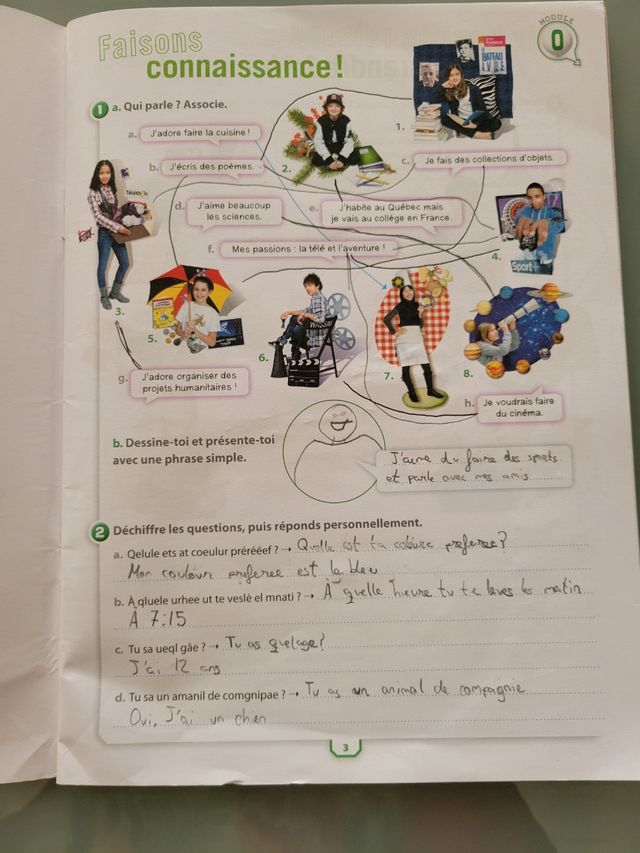 MODULE
0
Faisons
connaissance !
1 a. Qui parle ? Associe.
a. J'adore faire la cuisine !
1.
BATEAU
IVRE
b. J'écris des poèmes.
2.
c. Je fais des collections d'objets.
d. J'aime beaucoup
les sciences.
e. J'habite au Québec mais
je vais au collège en France.
f. Mes passions : la télé et l'aventure !
4.
Sport
3.
5.
6.
7.
8.
g. J'adore organiser des
projets humanitaires !
h. Je voudrais faire
du cinéma.
b. Dessine-toi et présente-toi
avec une phrase simple.
J'aime du faire des sports
et parle avec mes amis
2 Déchiffre les questions, puis réponds personnellement.
a. Qelule ets at coeulur prérééef ? → Quelle est ta couleure preferee?
Mon couleur preferee est la bleu
b. À qluele urhee ut te veslè el mnati ? → À quelle heure tu te leves les matin
À 7:15
c. Tu sa ueql gâe ? → Tu as quelage?
J'ai 12 ans
d. Tu sa un amanil de comgnipae ? → Tu as un animal de compagnie
Oui, J'ai un chien
3